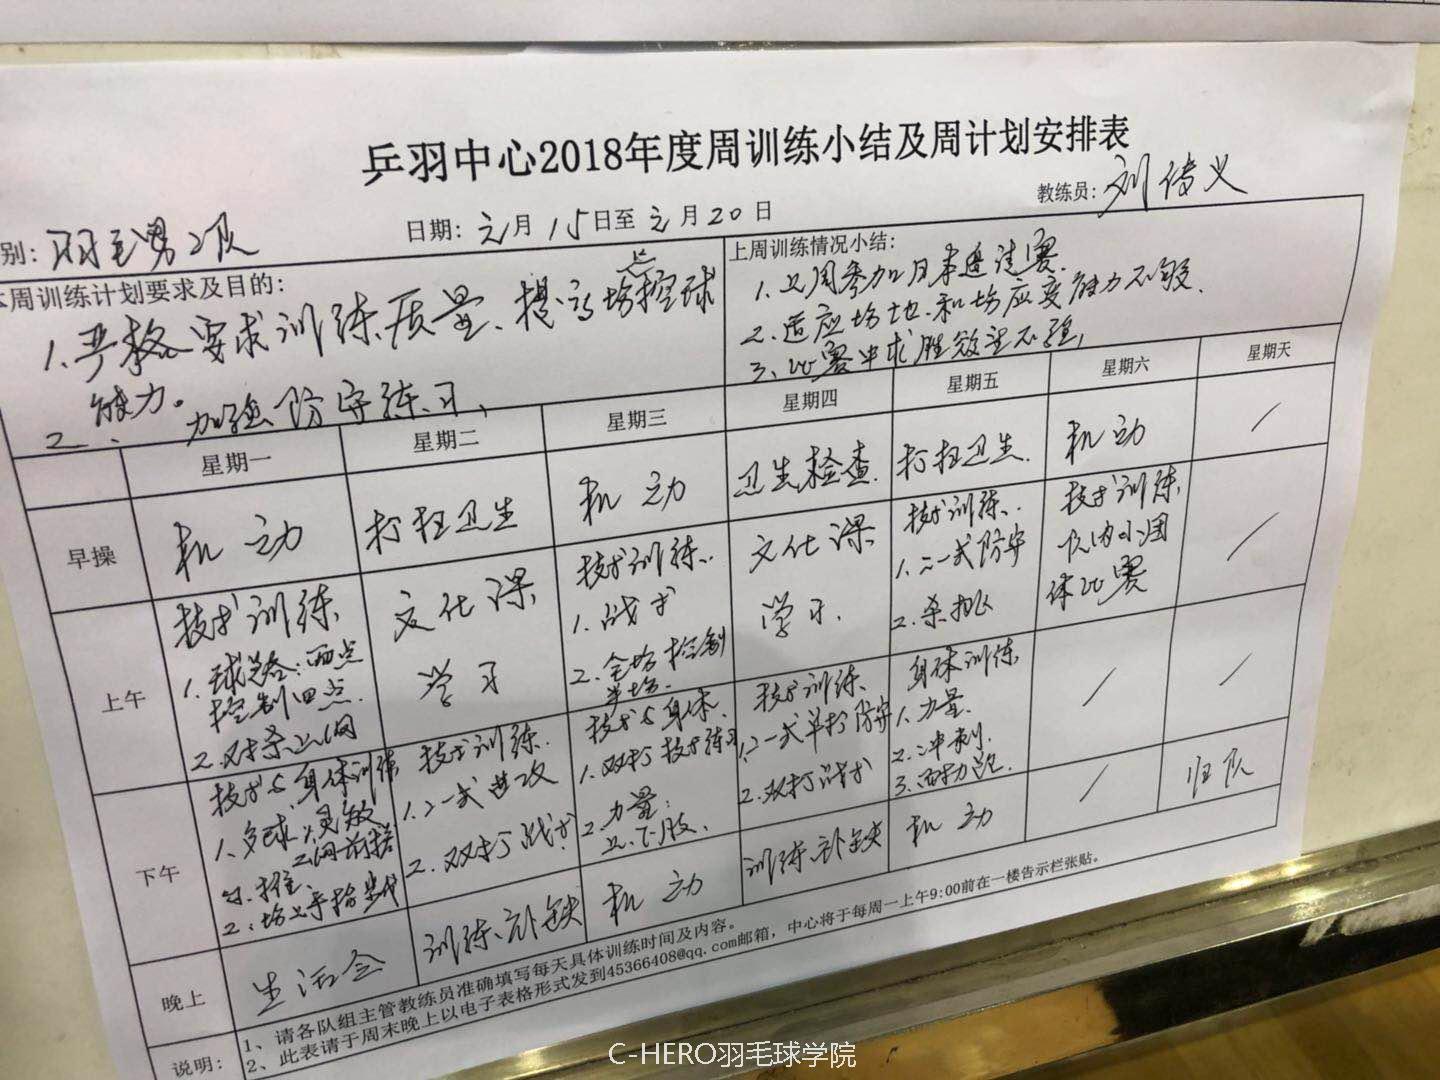 乒羽中心2018年度周训练小结及周计划安排表
别：羽毛男2队
日期：元月15日至元月20日
教练员：刘
本周训练计划要求及目的：
1.严格要求训练质量、提高场上控球
能力。
2、加强防守练习、
上周训练情况小结：
1.上周参加日本邀请赛.
2.适应场地.和场应变能力不够.
3、比赛中求胜欲望不强,
星期一 星期二 星期三 星期四 星期五 星期六 星期天
早操 机动 打扫卫生 机动 卫生检查. 打扫卫生. 机动 /
上午
技术训练
1.球路：两点
控制四点.
2.对杀上网
文化课
学习
技术训练..
1.战术
2.全场控制
半场.
文化课
学习.
技术训练..
1.二一式防守
2.杀挑
技术训练.
队内小团
体比赛
/
下午
技术与身体训练
1、多球
2、场上手指步伐
技术训练.
1.二一式进攻
2.双打战术
技术与身体.
1.双打技术练习
2.力量：
上下肢.
技术训练.
1.二一式单打防守
2.双打战术
身体训练
1.力量.
2.冲刺.
3.跑.
/
/
晚上 生活会 训练补缺 机动 训练补缺 机动 / 归队
说明：
1、请各队组主管教练员准确填写每天具体训练时间及内容。
2、此表请于周末晚上以电子表格形式发到45366408@qq.com邮箱，中心将于每周一上午9:00前在一楼告示栏张贴。
C-HERO羽毛球学院